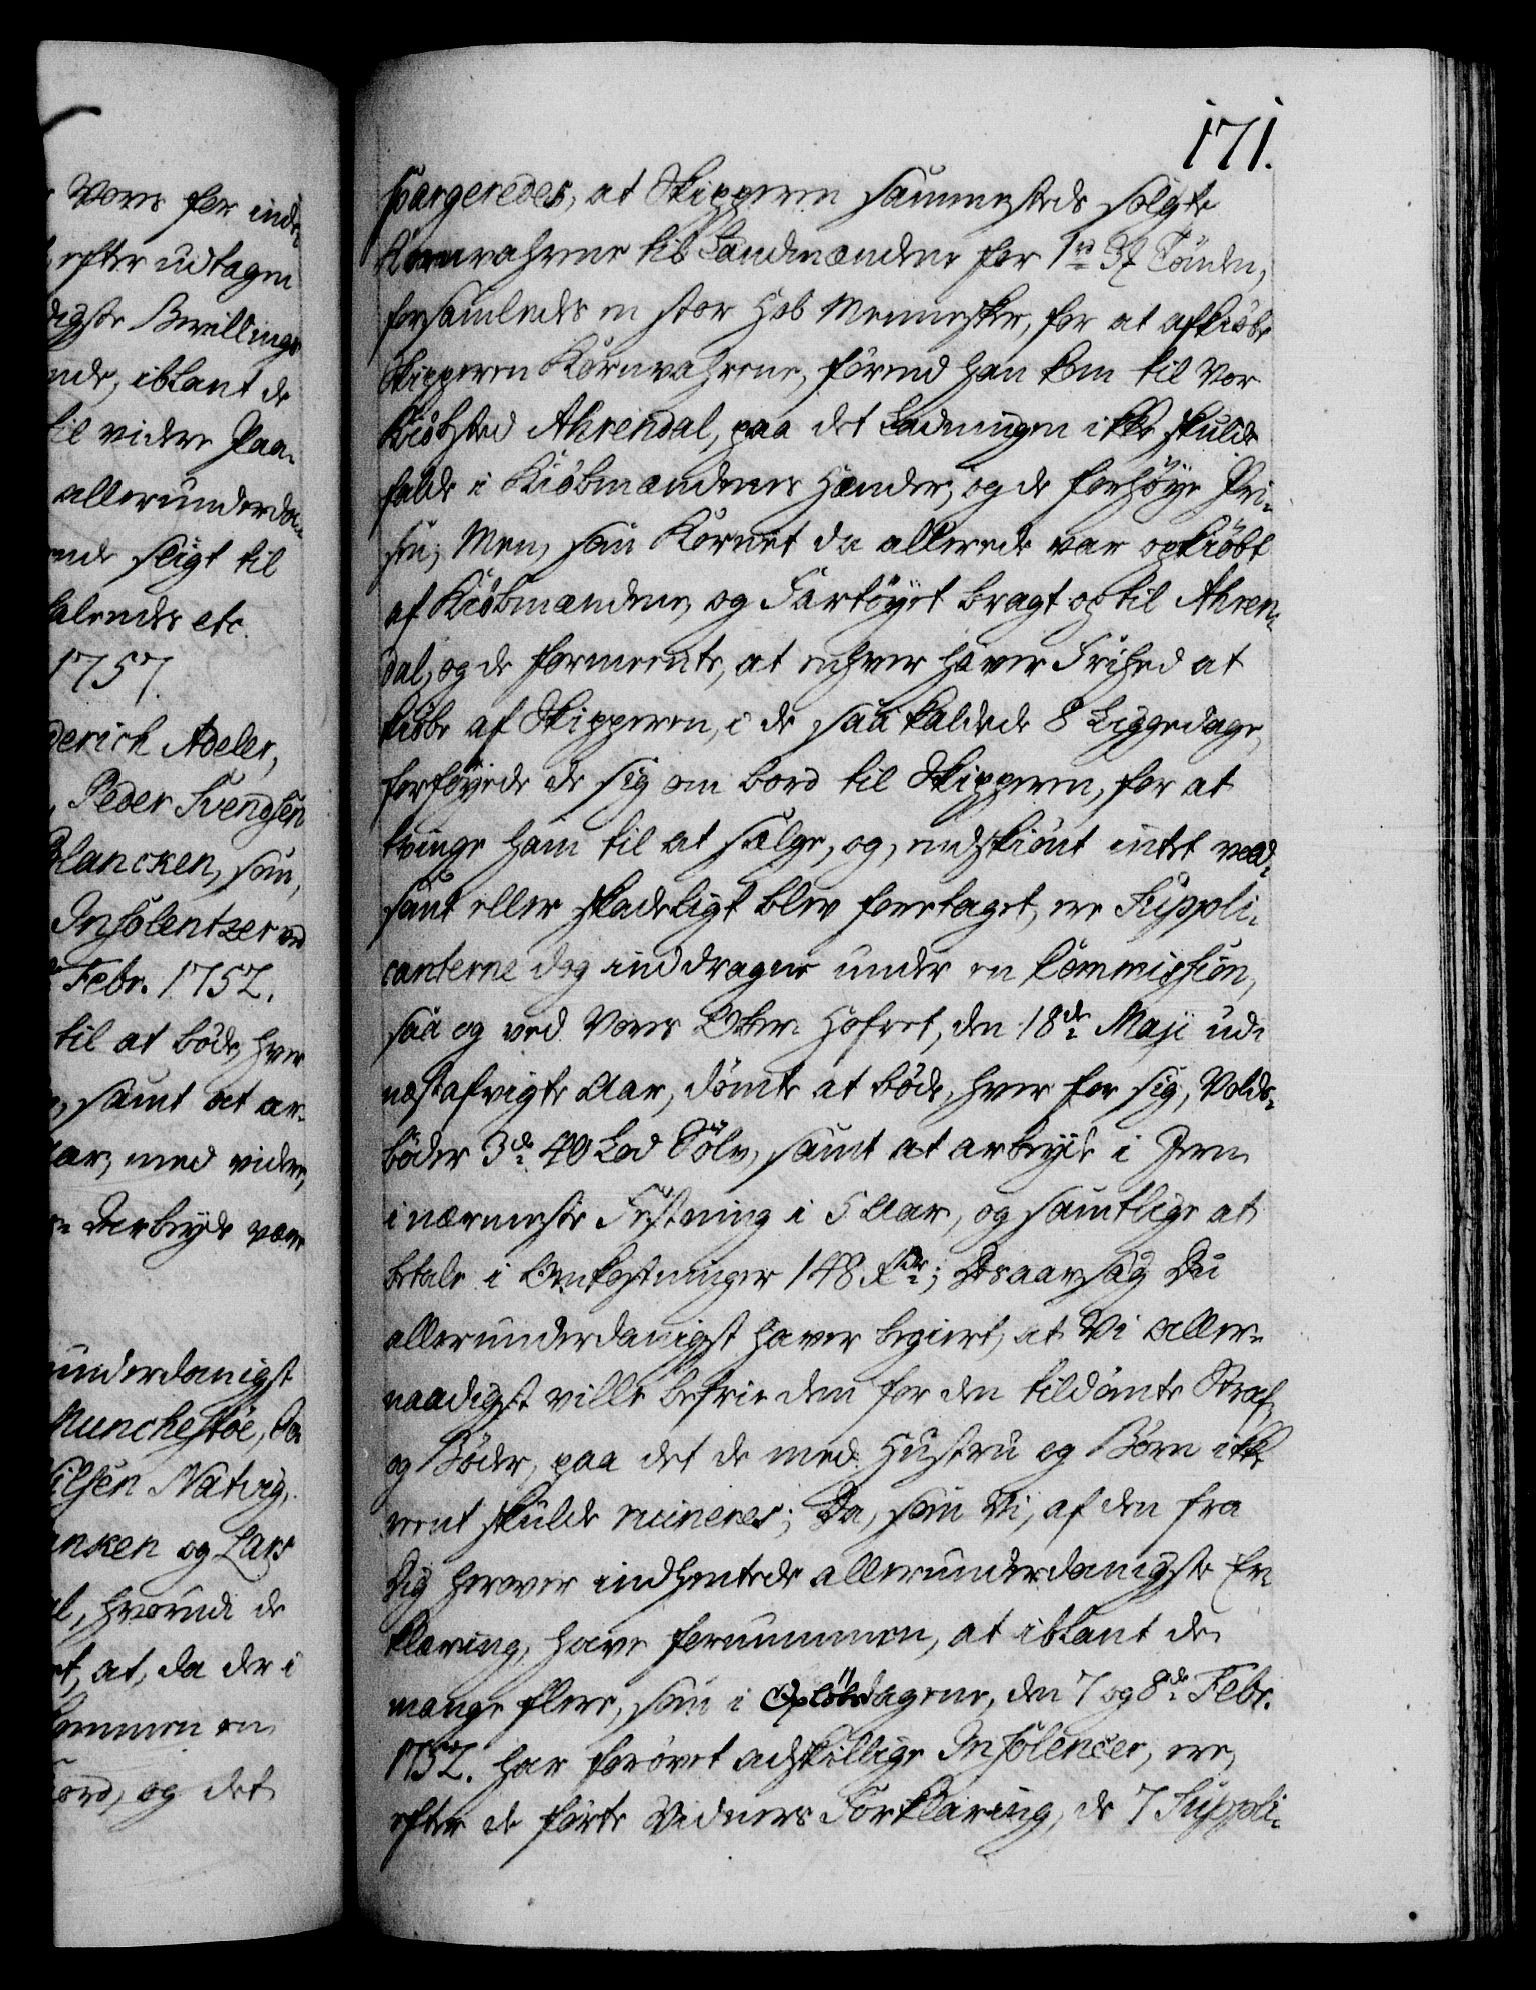 Vores for inde
efter udtagen
digste Bevillings
nde, iblant de
til videre Paa-
allerunderda-
ende sligt til
talendes etc.
1757.
derich Adeler,
Peder Svendsen
Blancken, som,
Insolentzer ved
Febr. 1752.
til at bøde, hver
samt at ar-
aar, med videre,
Arbeyde være
underdanigst
Munchestøe,
Nilsen Natvig,
ncken og Lars
hvorudi de
at, da der i
kommen en
fiord, og det
171.
spargeredes, at Skipperen sammesteds solgte
Kornvahrene til Landmændene for 1 rd 3 ß Tønden,
forsamledes en stor Hob Mennesker, for at afkiøbe
Skipperen Kornvahrene, førend han kom til Vor
Kiøbsted Ahrendal, paa det Ladningen ikke skulde
falde i Kiøbmændenes Hænder, og de forhøye Pri-
sen; Men, som Kornet da allerede var opkiøbt
af Kiøbmændene, og Fartøyet bragt op til Ahren-
dal, og de formeente, at enhver haver Frihed at
kiøbe af Skipperen, i de saa kaldede 8 Liggedage,
forføyede de sig om bord til Skipperen, for at
tvinge ham til at sælge, og, endskiønt intet vold-
somt eller skadeligt blev foretaget, ere Supppli-
canterne dog inddragne under en Commission,
saa og ved Vores Ober-Hofret, den 18de Maji udi
næstafvigte Aar, dømte at bøde, hver for sig, Volds-
bøder 3de 40 Lod Sølv, samt at arbeyde i Jern
i nærmeste Festning i 5 Aar, og samtlige at
betale i Omkostninger 148 Rdr; Desaarsag Du
allerunderdanigst haver begiert, at Vi aller-
naadigst ville befrie dem for den tildømte Straf,
og Bøder, paa det de med Hustru og Børn ikke
reent skulde ruineres; Da, som Vi, af den fra
Dig herover indhentede allerunderdanigste Er-
klæring, have fornummen, at iblant de
mange flere, som i Opløbsdagene, den 7 og 8de Febr.
1752. har forøvet adskillige Insolencer, ere,
efter de førte Vidners Forklaring, de 7 Suppli-